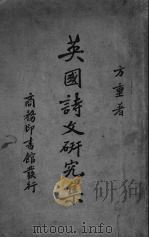 方重著
英國詩文研究集
商務印書館發行
www.duxiu.com